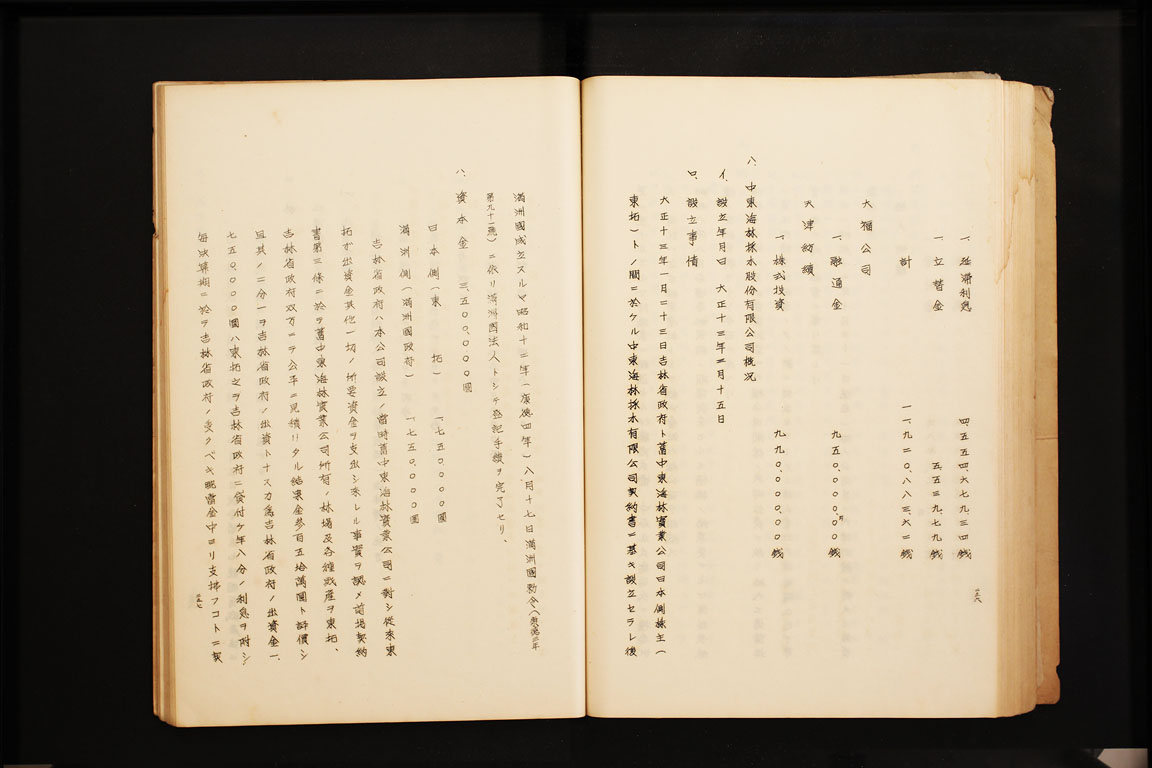 一、延滞利息 四、五五四、六七九、三四銭
一、立替金 五、五三九、七九銭
計 一一、九二〇、八八三、六二銭
大福公司
一、融通金 九五〇、〇〇〇、〇〇銭
天津紡績
一、株式投資 九九〇、〇〇〇、〇〇銭
八、中東海林採木股份有限公司概況
イ、設立年月日 大正十三年二月十五日
ロ、設立事情
大正十三年一月二十三日吉林省政府ト舊中東海林實業公司日本側株主(
東拓)トノ間ニ於ケル中東海林採木有限公司契約書ニ基キ設立セラレ後
一三六
滿洲國成立スルヤ昭和十二年(康德四年)八月十七日滿洲國勅令(康德二年
第九十二號)ニ依リ滿洲國法人トシテ登記手續ヲ完了セリ、
ハ、資本金 三、五〇〇、〇〇〇圓
日本側(東拓) 一、七五〇、〇〇〇圓
滿洲側(滿洲國政府) 一、七五〇、〇〇〇圓
吉林省政府ハ本公司設立ノ當時舊中東海林實業公司ニ對シ從來東
拓ガ出資金其他一切ノ所要資金ヲ支出シ來レル事實ヲ認メ前揭契約
書第三條ニ於テ舊中東海林實業公司所有ノ林場及各種財產ヲ東拓、
吉林省政府双方ニテ公平ニ見積リタル結果金參百五拾萬圓ト評價シ
且其ノ二分一ヲ吉林省政府ノ出資トナス爲吉林省政府ノ出資金一、
七五〇、〇〇〇圓ハ東拓之ヲ吉林省政府ニ貸付ケ年八分ノ利息ヲ附シ
每決算期ニ於テ吉林省政府ノ受クベキ配當金中ヨリ支拂フコトニ契
一三七